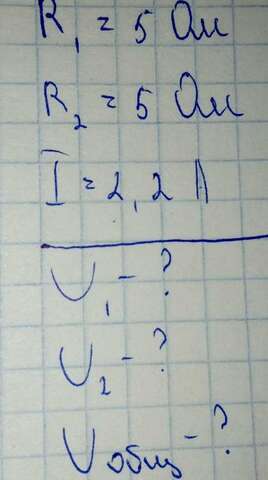 R₁ = 5 Ом
R₂ = 5 Ом
I = 2,2 А
U₁ - ?
U₂ - ?
Uобщ - ?